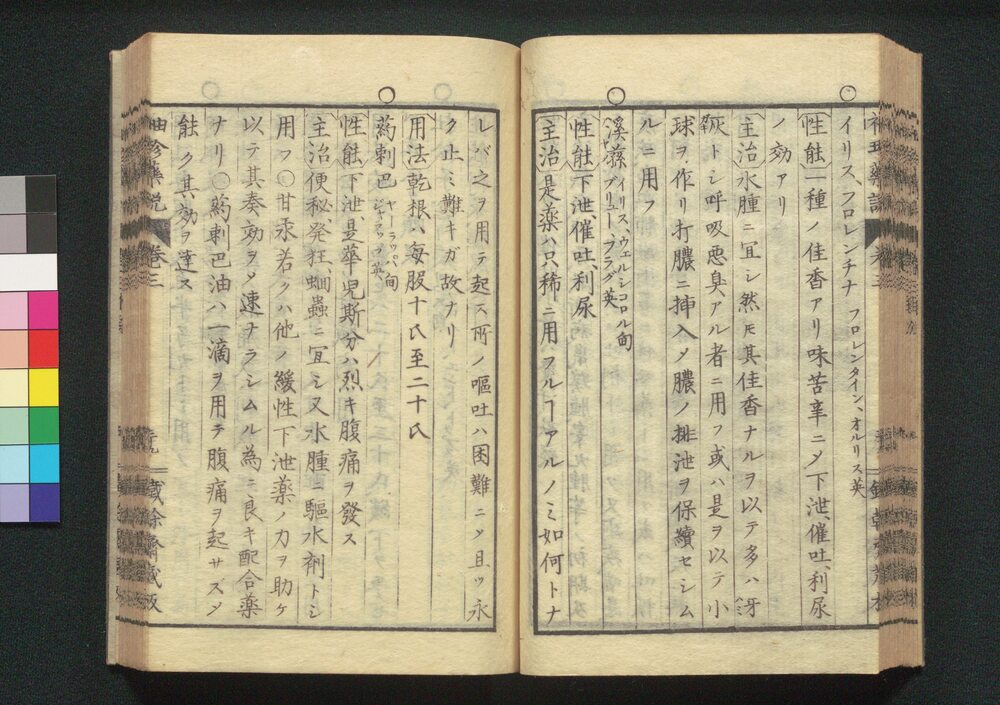 イリス、フロレンチナ フロレンタイン、オルリス英
性能 一種ノ佳香アリ味苦辛ニ〆下泄、催吐、利尿
ノ効アリ
主治 水腫ニ宜シ然𪜈其佳香ナルヲ以テ多ハ牙
灰トシ呼吸悪臭アル者ニ用フ或ハ是ヲ以テ小
球ヲ作リ打膿ニ挿入〆膿ノ排泄ヲ保續セシム
ルニ用フ
溪蓀 イリス、ウェルシコロル甸 ブリュー、フラグ英
性能 下泄、催吐、利尿
主治 是薬ハ只稀ニ用フルヿアルノミ如何トナ
レバ之ヲ用テ起ス所ノ嘔吐ハ困難ニ〆且ツ永
ク止ミ難キガ故ナリ
用法 乾根ハ毎服十氏至二十氏
葯剌巴 ヤーラッパ甸 ジャラップ英
性能 下泄、是華児斯分ハ烈キ腹痛ヲ發ス
主治 便秘、発狂、蛔蟲ニ宜シ又水腫ニ驅水剤トシ
用フ○甘汞若クハ他ノ緩性下泄薬ノ力ヲ助ケ
以テ其奏効ヲ〆速ナラシムル為ニ良キ配合薬
ナリ○葯剌巴油ハ一滴ヲ用テ腹痛ヲ起サズ〆
能ク其効ヲ達ス
袖珍薬説 巻三